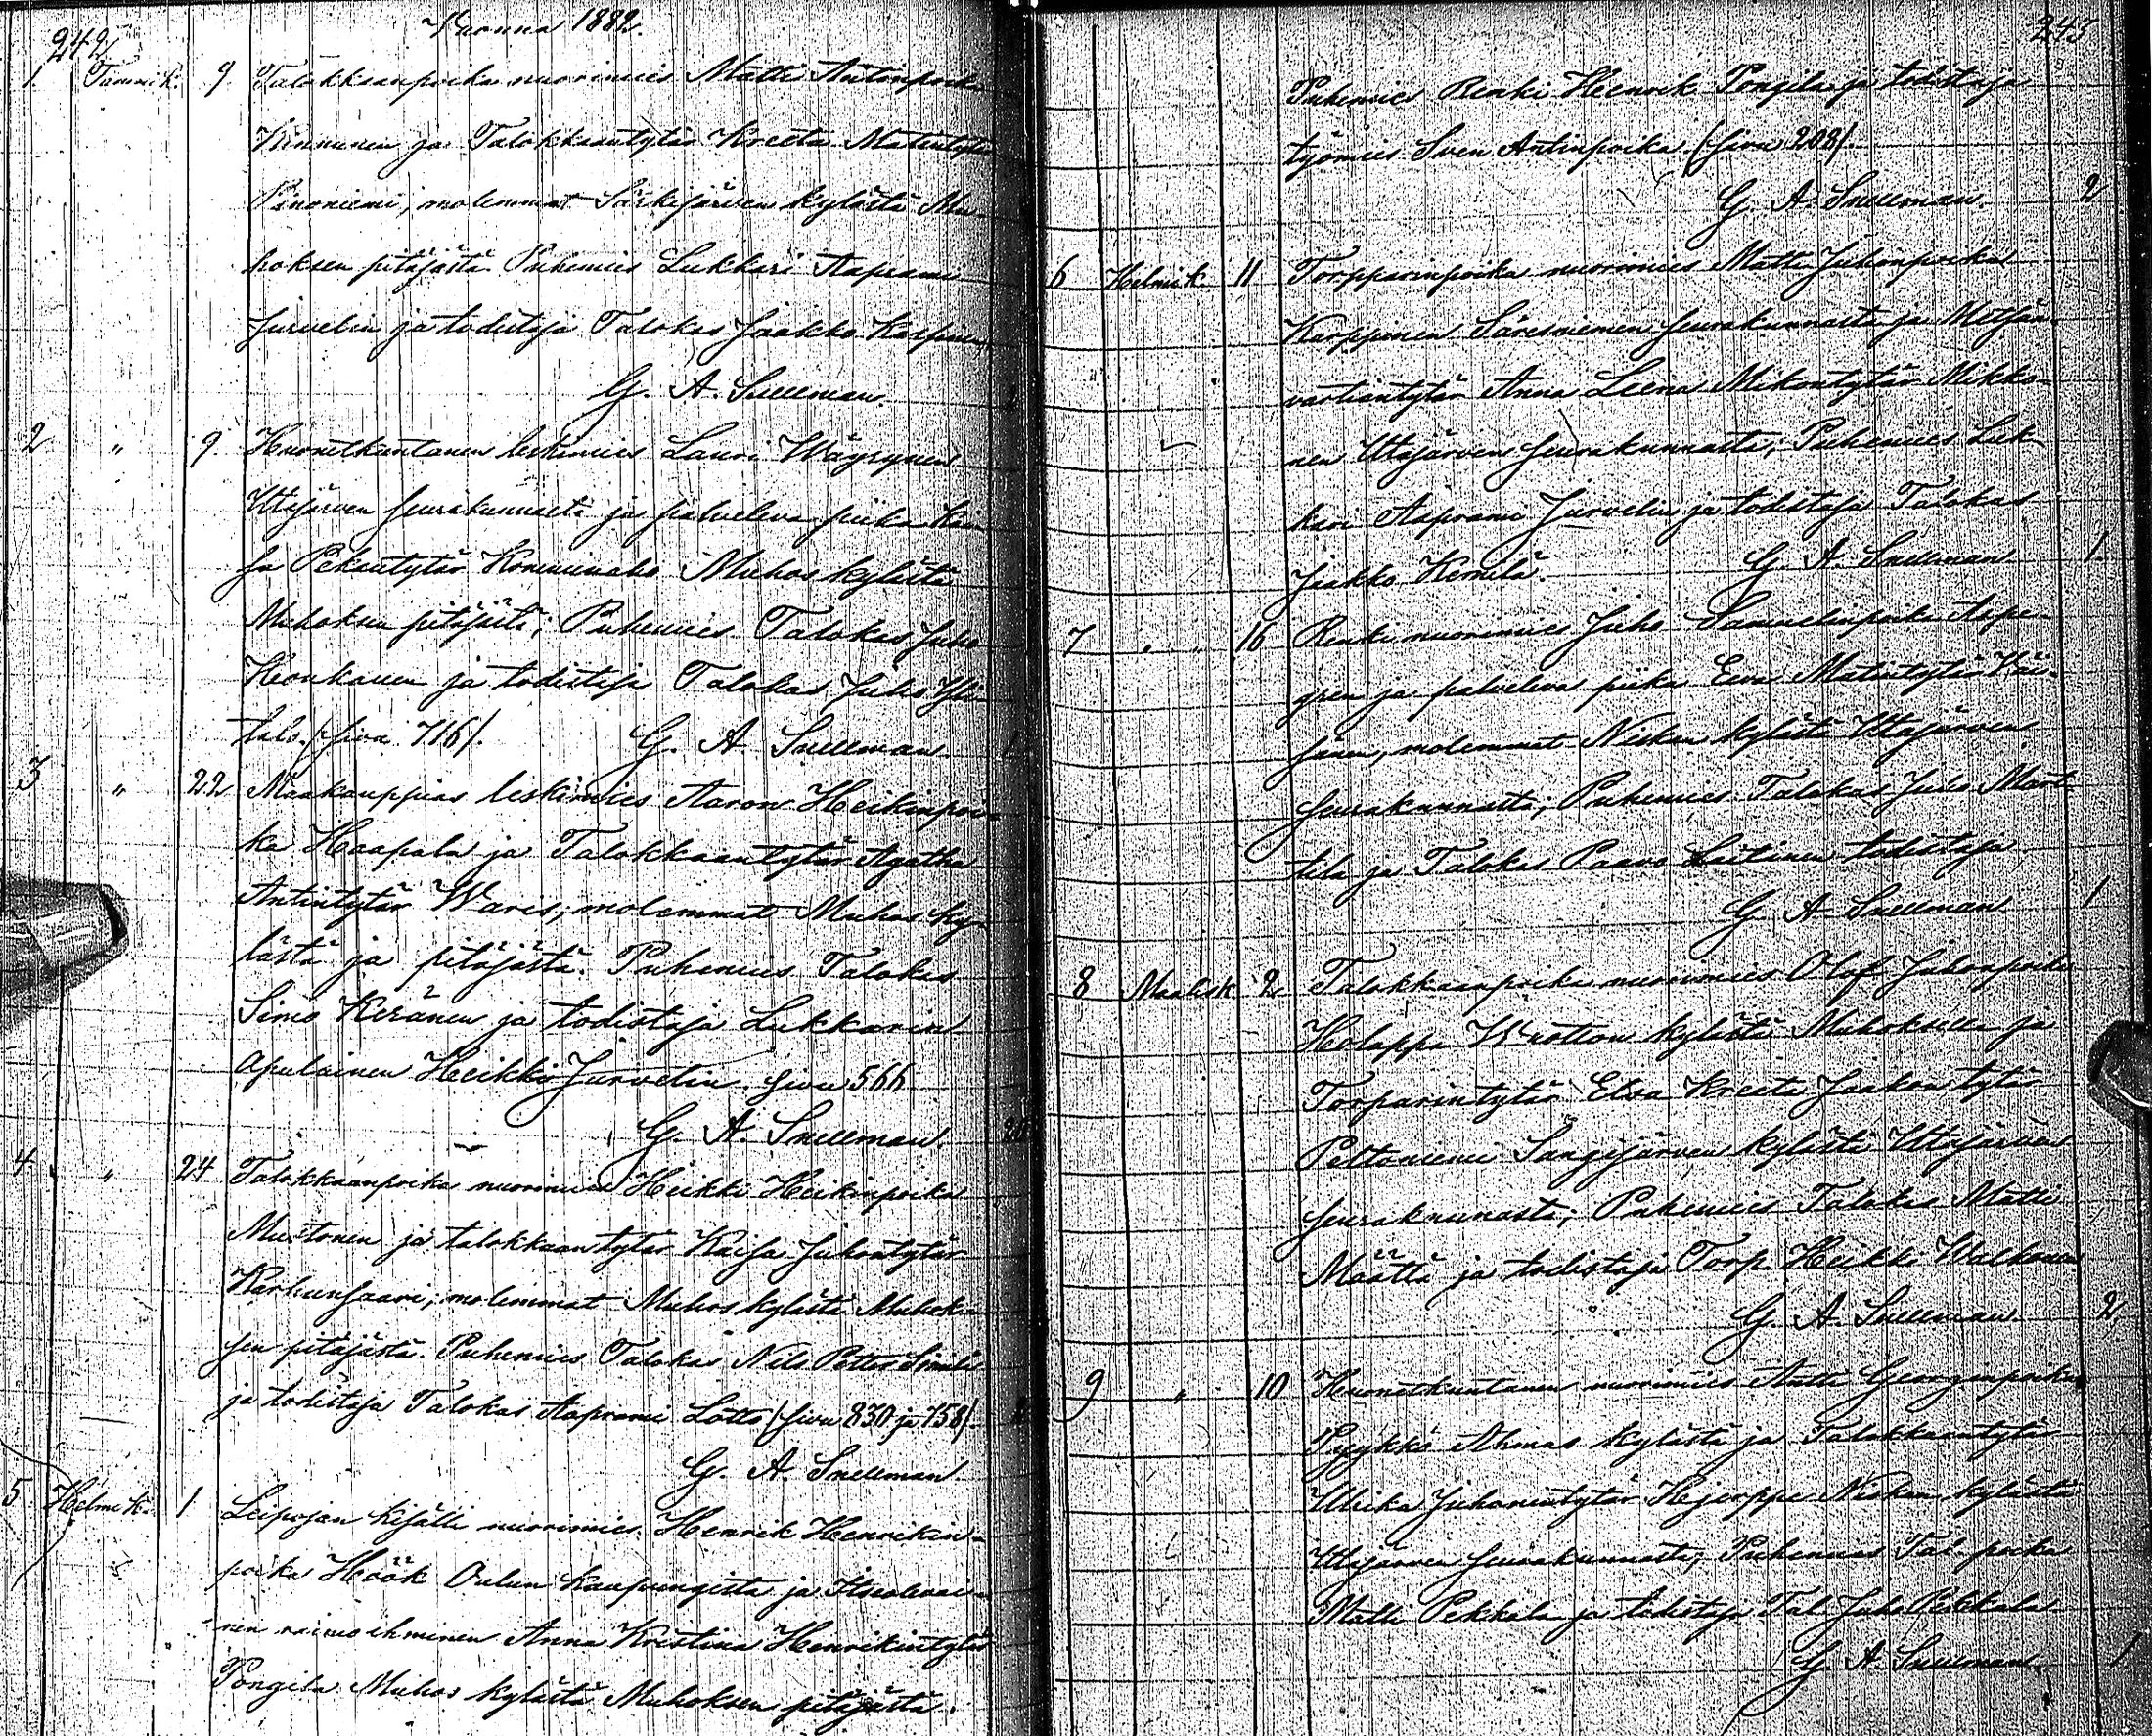 242
Vuonna 1882.
1. Tammik. 9 Talokkaanpoika nuorimies Matti Antinpoika
Kinnunen ja Talokkaantytär Kreeta Matintytär
Pinoniemi, molemmat Särkijärven kylästä Mu-
hoksen pitäjästä. Puhemies Lukkari Aaprami
Jurvelin ja todistaja Talokas Jaakko Karpinen
G. A. Snellman.
2 " 9 Huonetkuntanen leskimies Lauri Wäyrynen
Utajärven seurakunnasta ja palveleva piika Kai
sa Pekantytär Konnunaho Muhos kylästä
Muhoksen pitäjästä; Puhemies Talokas Juho
Keränen ja todistaja Talokas Juho Yli-
talo. (sivu 716). G. A. Snellman. 1
3 " 22 Maakauppias leskimies Aaron Heikinpoi-
ka Haapala ja Talokkaantytär Agatha
Antintytär Wares, molemmat Muhos ky-
lästä ja pitäjästä. Puhemies Talokas
Simo Keränen ja todistaja Lukkarin
apulainen Heikki Jurvelin. sivu 566.
G. A. Snellman.
4 " 24 Talokkaanpoika nuorimies Heikki Heikinpoika
Mustonen ja talokkaantytär Kaisa Juhontytär
Karhunsaari, molemmat Muhos kylästä Muhok-
sen pitäjästä. Puhemies Talokas Nils Petter Simila
ja todistaja Talokas Aaprami Lotto (sivu 830 ja 758).
G. A. Snellman.
5 Helmik. 1 Leipojan kisälli nuorimies Henrik Henrikin-
poika Höök Oulun kaupungista ja Itsellinen
nen vaimo ihminen Anna Kristina Henrikintytär
Pongila Muhos kylästä Muhoksen pitäjästä.
243
Puhemies Renki Henrik Pongila ja todistaja
työmies Sven Antinpoika (sivu 208).
G. A. Snellman. 2
6 Helmik. 11 Torpparinpoika nuorimies Matti Juhonpoika
Karppinen Säresniemen seurakunnasta ja Metsän
vartiantytär Anna Leena Mikontytär Mikko-
nen Utajärven seurakunnasta; Puhemies Luk-
kari Aaprami Jurvelin ja todistaja Talokas
Jaakko Kemilä. G. A. Snellman. 1
7 " " 16 Renki nuorimies Juho Samuelinpoika Aspe-
gren ja palveleva piika Eeva Matintytär Väi-
sänen, molemmat Niskan kylästä Utajärven
seurakunnasta; Puhemies Talokas Juho Mart-
tila ja Talokas Paavo Laitinen todistaja
G. A. Snellman. 1
8 Maalisk. 2 Talokkaanpoika nuorimies Olof Juhonpoika
Holappa Wuotton kylästä Muhoksella ja
Torparintytär Elsa Kreeta Jaakontytär
Peltoniemi Sangijärven kylästä Utajärven
seurakunnasta; Puhemies Talokas Matti
Määttä ja todistaja Torp. Heikki Walkonen
G. A. Snellman. 2
9 " 10 Huonetkuntanen nuorimies Antti Georginpoika
Pyykkö Ahmas kylästä ja Talokkaantytär
Ulrika Juhanintytär Kejorppe Niskan kylästä
Utajärven seurakunnasta; Puhemies Tal. poika
Matti Pekkala ja todistaja Tal. Juho Pekkala
G. A. Snellman. 1